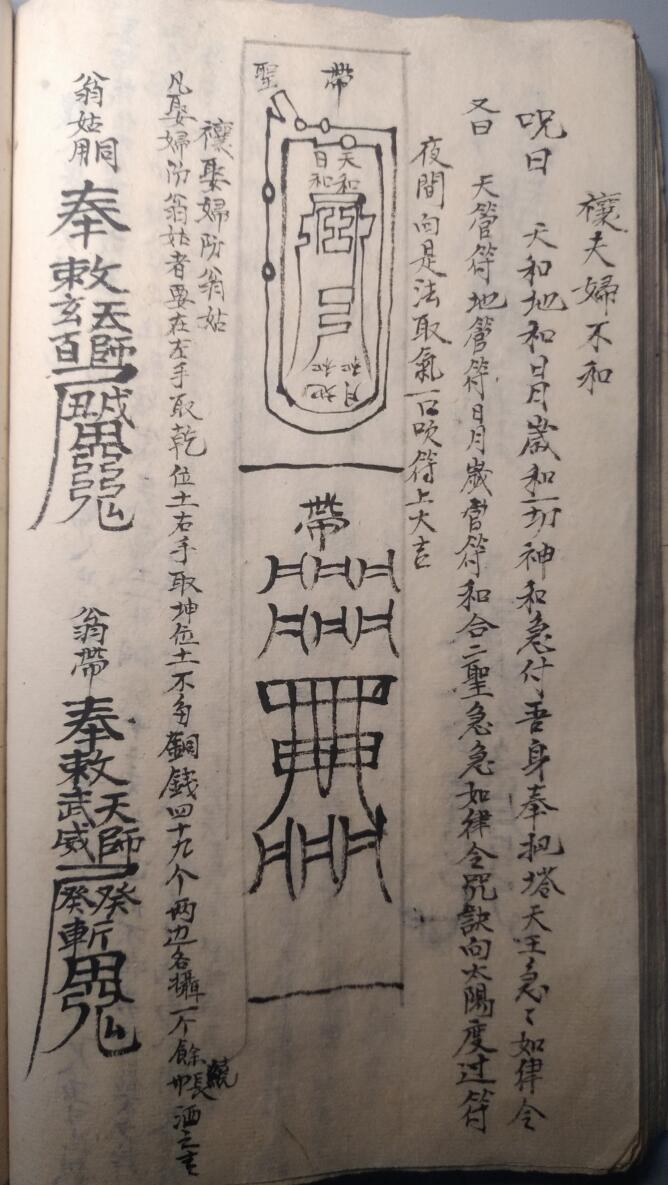 禳夫婦不和
呪曰 天和地和日月歲和一切神和急付吾身奉把塔天王急々如律令
又曰 天管符地管符日月歲管符和合二聖急急如律令咒訣向太陽度过符
夜間向是法取氣一口吹符上大吉
聖 帶
日和 天和
月和 地和
帶
禳娶婦防翁姑
凡娶婦防翁姑者要在左手取乾位土右手取坤位土不多銅錢四十九个两边各攝一个餘帳洒之吉
翁姑同用
奉敕
天師
玄百
翁帶
奉敕
天師
武威
癸癸斬